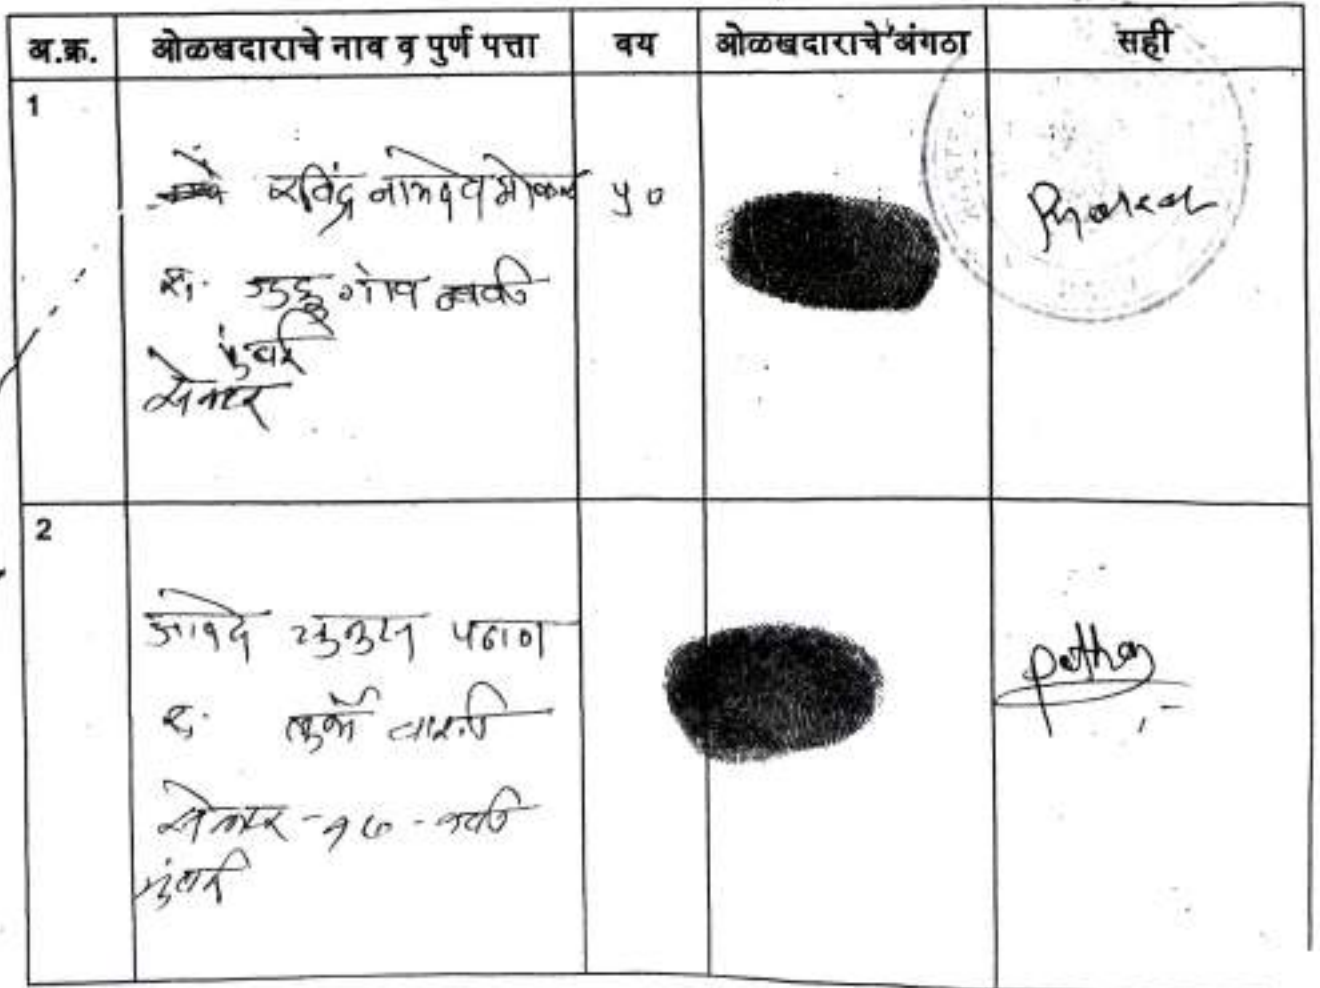 अ.क्र. ओळखदाराचे नाव व पुर्ण पत्ता वय ओळखदाराचे अंगठा सही
1
रविंद्र नामदेव मोकल ५०
रा. गाव नवी
मुंबई
सेक्टर
2
पठाण
रा. तुर्भे
सेक्टर - १७ - नवी
मुंबई
Pathan